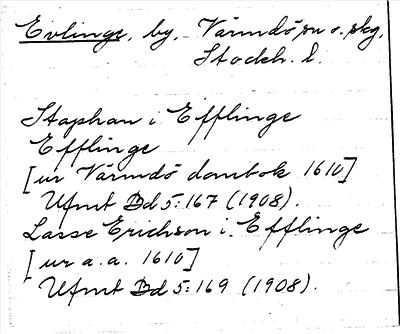 Evlinge, by, Värmdö sn o. skg,
Stockh. l.
Staphan i Efflinge
Efflinge
[ur Värmdö dombok 1610]
Ufmt Bd 5:167 (1908).
Lasse Erichson i Efflinge
[ur a.a. 1610]
Ufmt Bd 5:169 (1908).